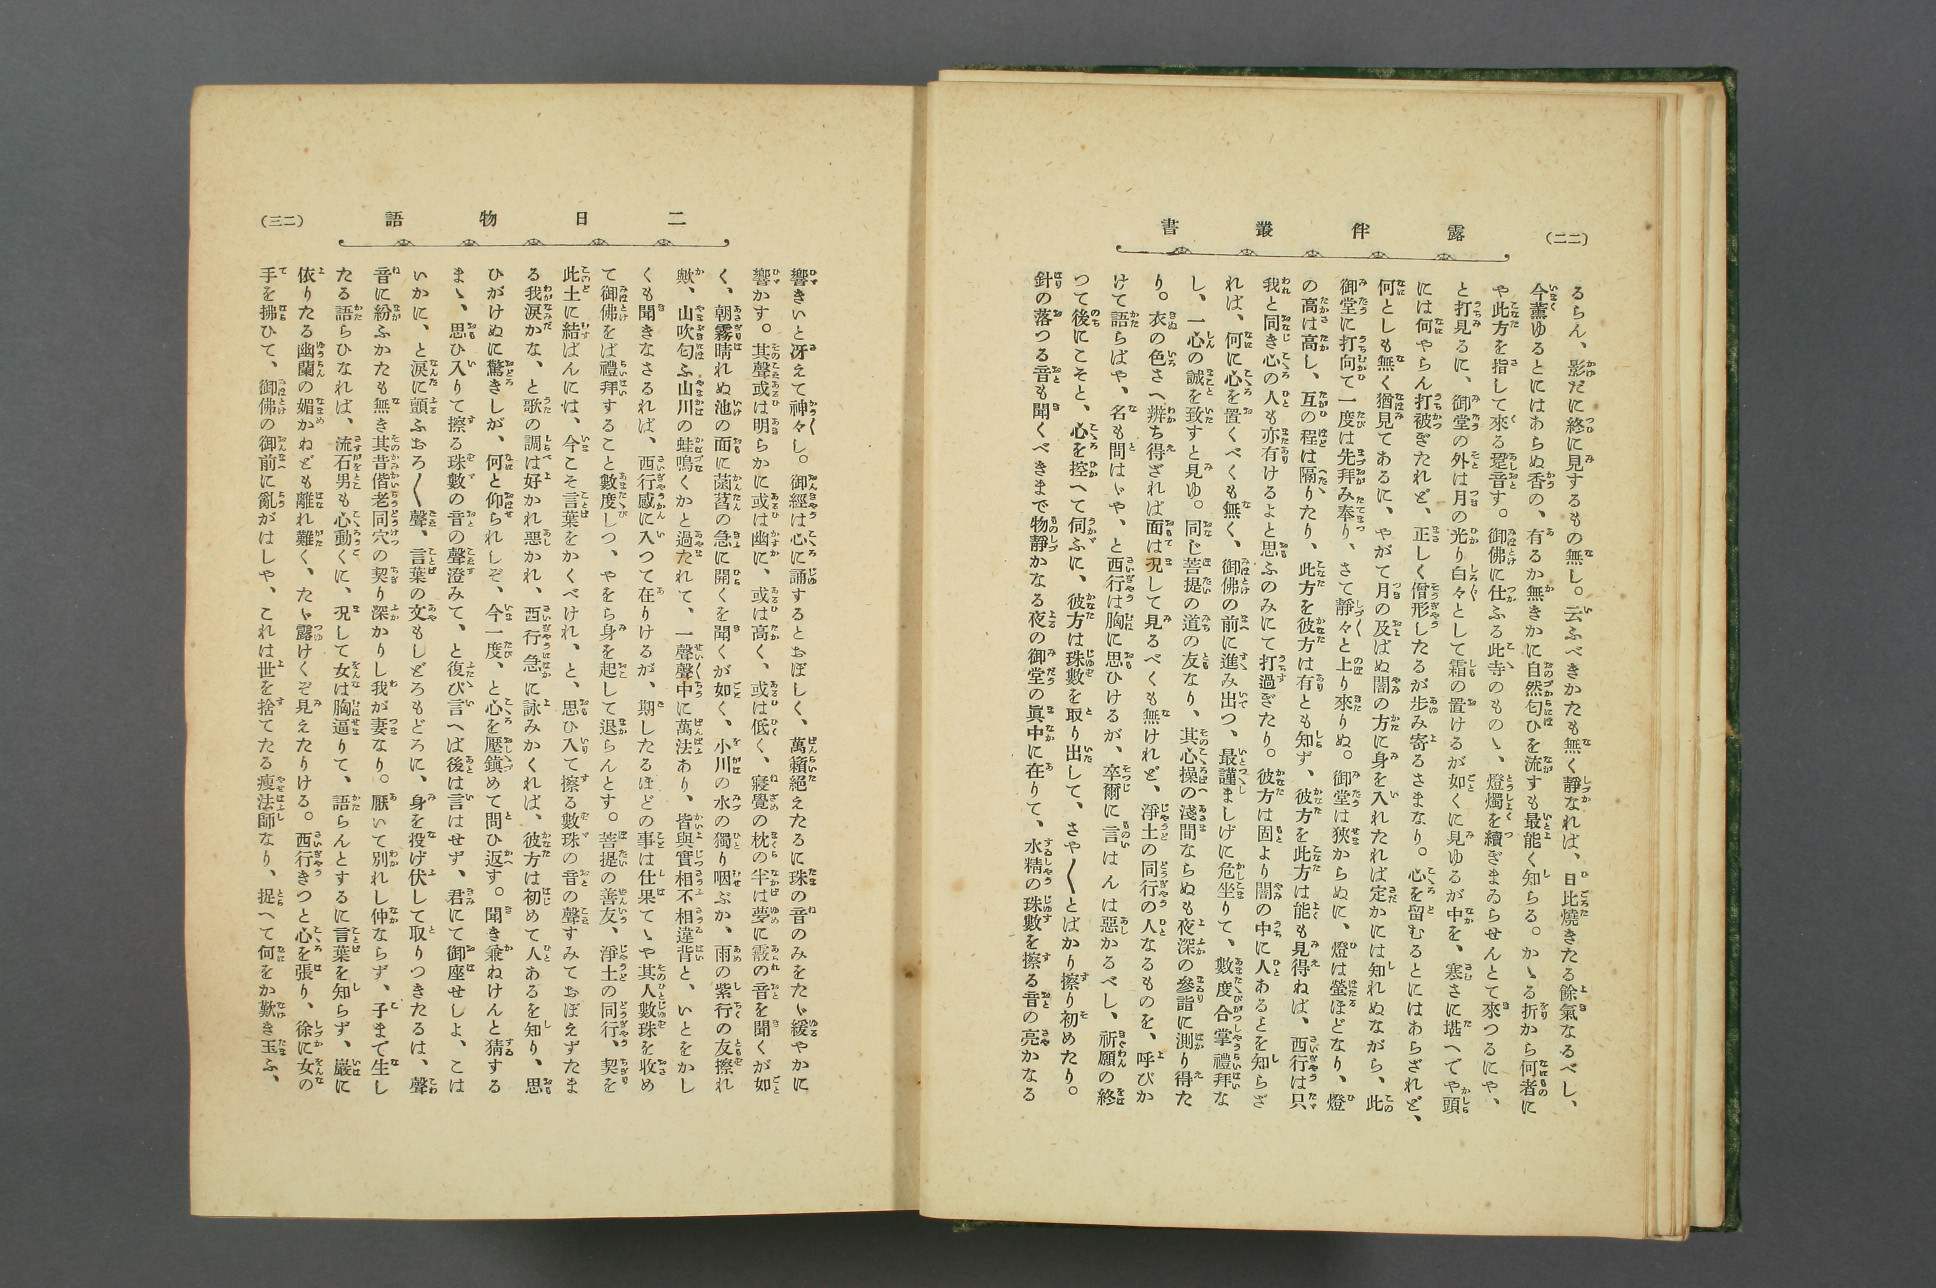 (二二)
露伴叢書
るらん、影だに終に見するもの無し。云ふべきかたも無く靜なれば、日比燒きたる餘氣なるべし、
今薫ゆるとにはあらぬ香の、有るか無きかに自然匂ひを流すも最能く知らる。かゝる折から何者に
や此方を指して來る跫音す。御佛に仕ふる此寺のものゝ、燈燭を續ぎまゐらせんとて來つるにや、
と打見るに、御堂の外は月の光り白々として霜の置けるが如くに見ゆるが中を、寒さに堪へでや頭
には何やらん打被ぎたれど、正しく僧形したるが歩み寄るさまなり。心を留むるとにはあらざれど、
何としも無く猶見てあるに、やがて月の及ばぬ闇の方に身を入れたれば定かには知れぬながら、此
御堂に打向て一度は先拜み奉り、さて靜々と上り來りぬ。御堂は狹からぬに、燈は螢ほどなり、燈
の高は高し、互の程は隔りたり、此方を彼方は有とも知ず、彼方を此方は能も見得ねば、西行は只
我と同き心の人も亦有けるよと思ふのみにて打過ぎたり。彼方は固より闇の中に人あるとを知らざ
れば、何に心を置くべくも無く、御佛の前に進み出つ、最謹ましげに危坐りて、數度合掌禮拜な
し、一心の誠を致すと見ゆ。同じ菩提の道の友なり、其心操の淺間ならぬも夜深の參詣に測り得た
り。衣の色さへ辨ち得ざれば面は况して見るべくも無けれど、淨土の同行の人なるものを、呼びか
けて語らばや、名も問はゞや、と西行は胸に思ひけるが、卒爾に言はんは惡かるべし、祈願の終
つて後にこそと、心を控へて伺ふに、彼方は珠數を取り出して、さや〱とばかり擦り初めたり。
針の落つる音も聞くべきまで物靜かなる夜の御堂の眞中に在りて、水精の珠數を擦る音の亮かなる
二日物語
(二三)
響きいと冴えて神々し。御經は心に誦するとおぼしく、萬籟絕えたるに珠の音のみをたゞ緩やかに
響かす。其聲或は明らかに或は幽に、或は高く、或は低く、寢覺の枕の半は夢に霰の音を聞くが如
く、朝霧晴れぬ池の面に菡萏の急に開くを聞くが如く、小川の水の獨り咽ぶか、雨の紫行の友擦れ
歟、山吹匂ふ山川の蛙鳴くかと過たれて、一聲聲中に萬法あり、皆與實相不相違背と、いとをかし
くも聞きなさるれば、西行感に入つて在りけるが、期したるほどの事は仕果てゝや其人數珠を收め
て御佛をば禮拜すること數度しつ、やをら身を起して退らんとす。菩提の善友、淨土の同行、契を
此土に結ばんには、今こそ言葉をかくべけれ、と、思ひ入て擦る數珠の音の聲すみておぼえずたま
る我淚かな、と歌の調は好かれ惡かれ、西行急に詠みかくれば、彼方は初めて人あるを知り、思
ひがけぬに驚きしが、何と仰られしぞ、今一度、と心を壓鎭めて問ひ返す。聞き兼ねけんと猜する
まゝ、思ひ入りて擦る珠數の音の聲澄みて、と復び言へば後は言はせず、君にて御座せしよ、こは
いかに、と淚に顫ふおろ〱聲、言葉の文もしどろもどろに、身を投げ伏して取りつきたるは、聲
音に紛ふかたも無き其昔偕老同穴の契り深かりし我が妻なり。厭いて別れし仲ならず、子まで生し
たる語らひなれば、流石男も心動くに、况して女は胸逼りて、語らんとするに言葉を知らず、巖に
依りたる幽蘭の媚かねども離れ難く、たゞ露けくぞ見えたりける。西行きつと心を張り、徐に女の
手を拂ひて、御佛の御前に亂がはしや、これは世を捨てたる瘦法師なり、捉へて何をか歎き玉ふ、